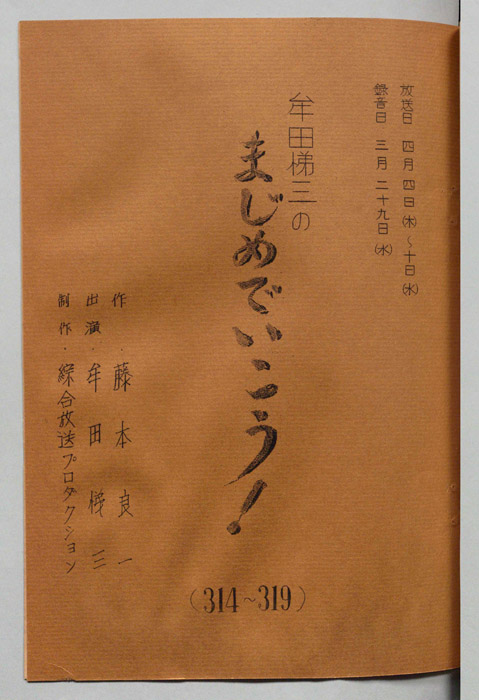 放送日 四月四日(木)~十日(水)
録音日 三月二十九日(水)
牟田悌三の
まじめでいこう!
(314~319)
作・藤本良一
出演・牟田悌三
制作・綜合放送プロダクション